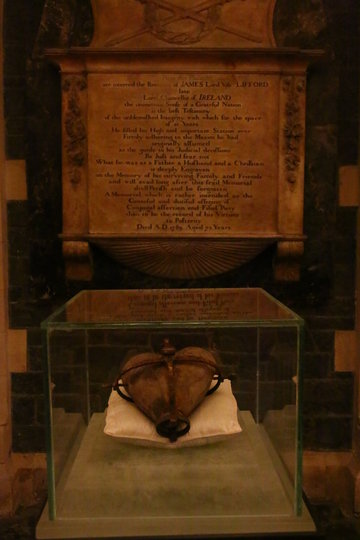 are interred the Remains of JAMES Lord Visct LIFFORD
late
Lord Chancellor of IRELAND
the unanimous Voice of a Grateful Nation
is the best Testimony
of the unblemished Integrity with which for the space
of 22 Years
He filled his High and important Station ever
firmly adhering to the Maxim he had
originally assumed
as the guide to his Judicial decisions
Be Just and fear not
What he was as a Father a Husband and a Christian
is deeply Engraven
on the Memory of his surviving Family and Friends
and will exist long after this frail Memorial
shall Perish and be forgotten
A Memorial which is rather intended as the
Grateful and dutiful offering of
Conjugal affection and Filial Piety
than to be the record of his Virtues
to Posterity
Died A.D. 1789 Aged